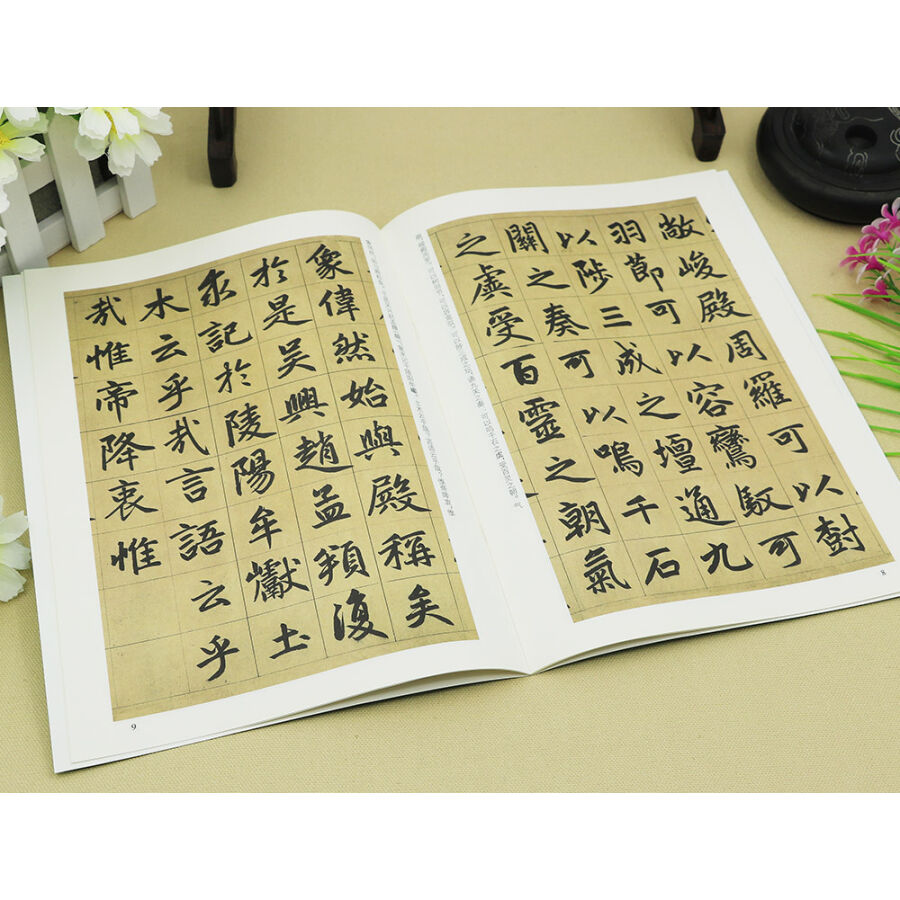 敞峻殿周羅可以樹
羽節可以容鸞馭可
以陟三成之壇通九
關之奏可以鳴千石
之虡受百靈之朝氣
8
象偉然始與殿稱矣
於是吳興趙孟頫復
求記於陵陽牟巘土
木云乎哉言語云乎
哉惟帝降衷惟
9